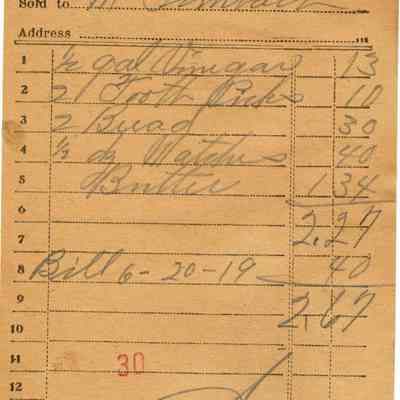 Sold to M
Address
1 ½ gal Vinegar 13
2 2 Tooth Picks 10
3 2 Bread 30
4 ½ dz Matches 40
5 Butter 1 34
6 2.27
7
8 Bill 6-20-19 40
9 2,67
10
11 30
12